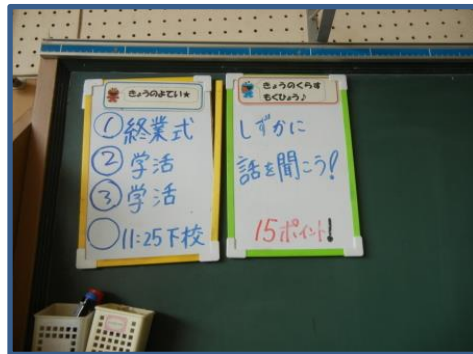 きょうのよてい★
①終業式
②学活
③学活
○11:25下校
きょうのくらす
もくひょう♪
しずかに
話を聞こう!
15ポイント!